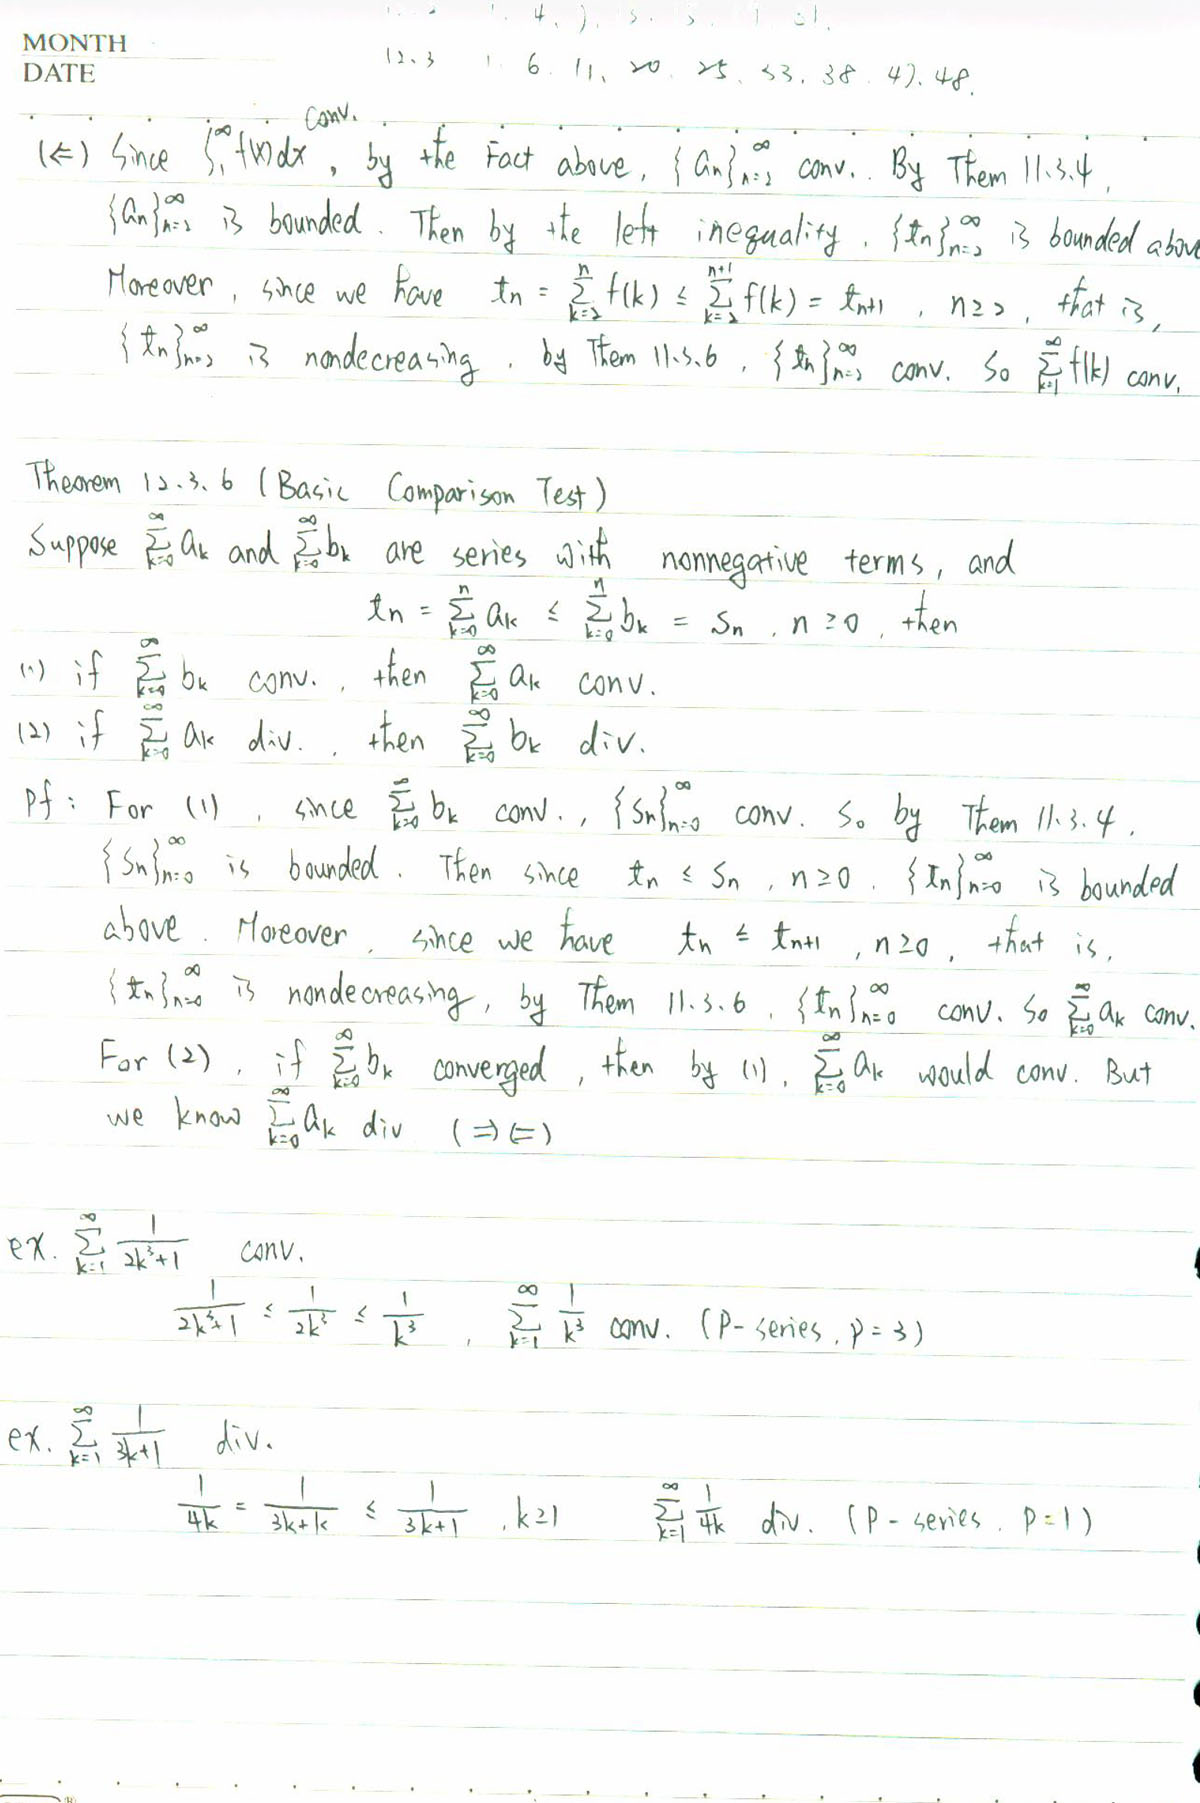 MONTH
DATE
12.3 1. 6. 11. 20. 25. 33. 38. 47. 48.
(⇐) Since ∫₁^∞ f(x)dx conv., by the Fact above, {an}_{n=2}^∞ conv.. By Them 11.3.4,
{an}_{n=2}^∞ is bounded. Then by the left inequality, {tn}_{n=2}^∞ is bounded above
Moreover, since we have tn = Σ_{k=2}^{n} f(k) ≤ Σ_{k=2}^{n+1} f(k) = tn+1, n≥2, that is,
{tn}_{n=2}^∞ is nondecreasing, by Them 11.3.6, {tn}_{n=2}^∞ conv. So Σ_{k=1}^∞ f(k) conv.
Theorem 12.3.6 (Basic Comparison Test)
Suppose Σ_{k=0}^∞ ak and Σ_{k=0}^∞ bk are series with nonnegative terms, and
tn = Σ_{k=0}^{n} ak ≤ Σ_{k=0}^{n} bk = Sn, n≥0, then
(1) if Σ_{k=0}^∞ bk conv., then Σ_{k=0}^∞ ak conv.
(2) if Σ_{k=0}^∞ ak div., then Σ_{k=0}^∞ bk div.
pf: For (1), since Σ_{k=0}^∞ bk conv., {Sn}_{n=0}^∞ conv. So by Them 11.3.4,
{Sn}_{n=0}^∞ is bounded. Then since tn ≤ Sn, n≥0, {tn}_{n=0}^∞ is bounded
above. Moreover, since we have tn ≤ tn+1, n≥0, that is,
{tn}_{n=0}^∞ is nondecreasing, by Them 11.3.6, {tn}_{n=0}^∞ conv. So Σ_{k=0}^∞ ak conv.
For (2), if Σ_{k=0}^∞ bk converged, then by (1), Σ_{k=0}^∞ ak would conv. But
we know Σ_{k=0}^∞ ak div (⇒⇐)
ex. Σ_{k=1}^∞ 1/(2k³+1) conv.
1/(2k³+1) ≤ 1/(2k³) ≤ 1/k³, Σ_{k=1}^∞ 1/k³ conv. (P-series, p=3)
ex. Σ_{k=1}^∞ 1/(3k+1) div.
1/(4k) = 1/(3k+k) ≤ 1/(3k+1), k≥1 Σ_{k=1}^∞ 1/(4k) div. (P-series, P=1)